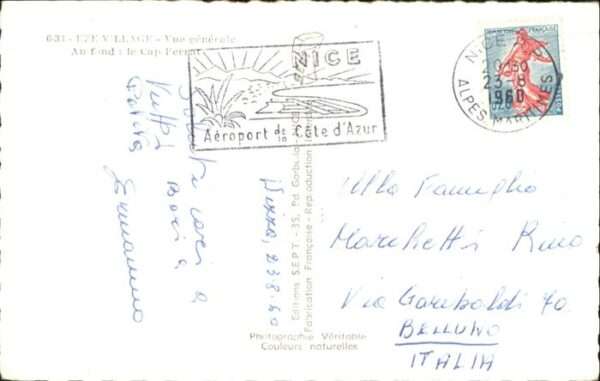 631 - EZE VILLAGE - Vue générale
Au fond : le Cap Ferrat
NICE
Aéroport de la Côte d'Azur
NICE
23-8
1960
ALPES MARITIMES
Nizza, 23.8.60
cari a
Baci a
Tutti
Alla Famiglia
Marchetti Rino
Via Garibaldi 70
BELLUNO
ITALIA
Editions S.E.P.T. - 35, Bd
Fabrication Française - Reproduction
Photographie Véritable
Couleurs naturelles